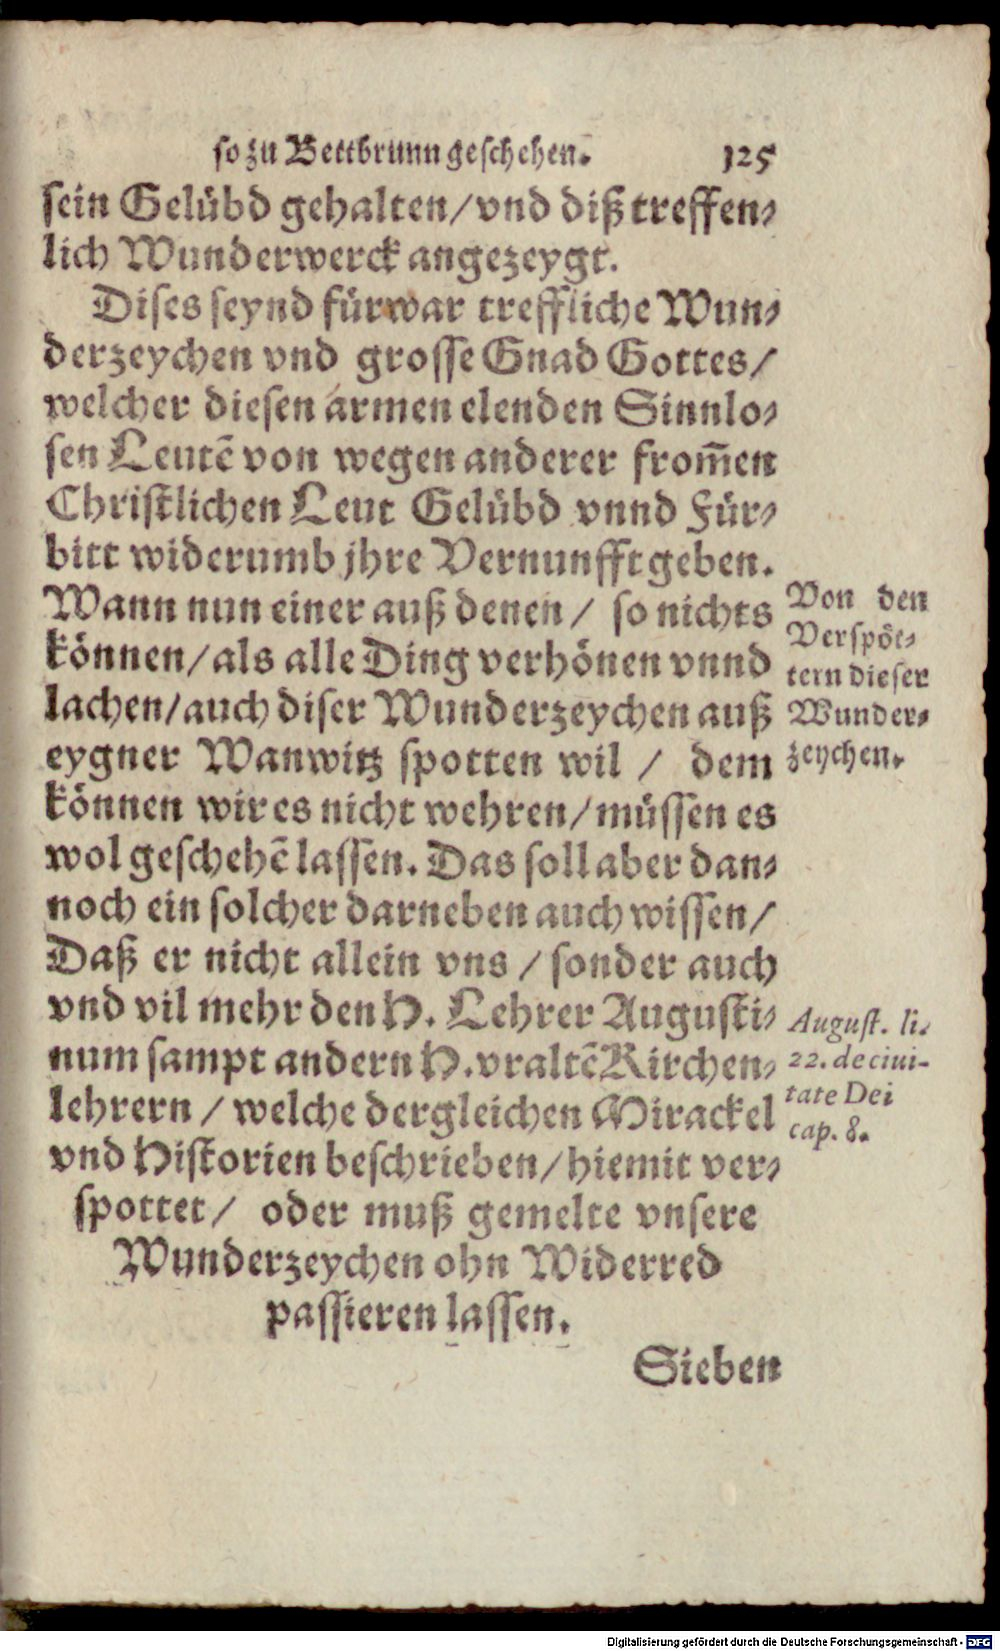 so zu Bettbrunn geschehen. 125
sein Gelübd gehalten/vnd diß treffen-
lich Wunderwerck angezeygt.
Dises seynd fürwar treffliche Wun-
derzeychen vnd grosse Gnad Gottes/
welcher diesen armen elenden Sinnlo-
sen Leutē von wegen anderer from̄en
Christlichen Leut Gelübd vnnd Für-
bitt widerumb jhre Vernunfft geben.
Wann nun einer auß denen/ so nichts
können/als alle Ding verhönen vnnd
lachen/auch diser Wunderzeychen auß
eygner Wanwitz spotten wil / dem
können wir es nicht wehren/müssen es
wol geschehē lassen. Das soll aber dan-
noch ein solcher darneben auch wissen/
Daß er nicht allein vns / sonder auch
vnd vil mehr den H. Lehrer Augusti-
num sampt andern H. vraltē Kirchen-
lehrern / welche dergleichen Mirackel
vnd Historien beschrieben/hiemit ver-
spottet/ oder muß gemelte vnsere
Wunderzeychen ohn Widerred
passieren lassen.
Sieben
Von den
Verspöt-
tern dieser
Wunder-
zeychen.
August. li.
22. de ciui-
tate Dei
cap. 8.
Digitalisierung gefördert durch die Deutsche Forschungsgemeinschaft - DFG